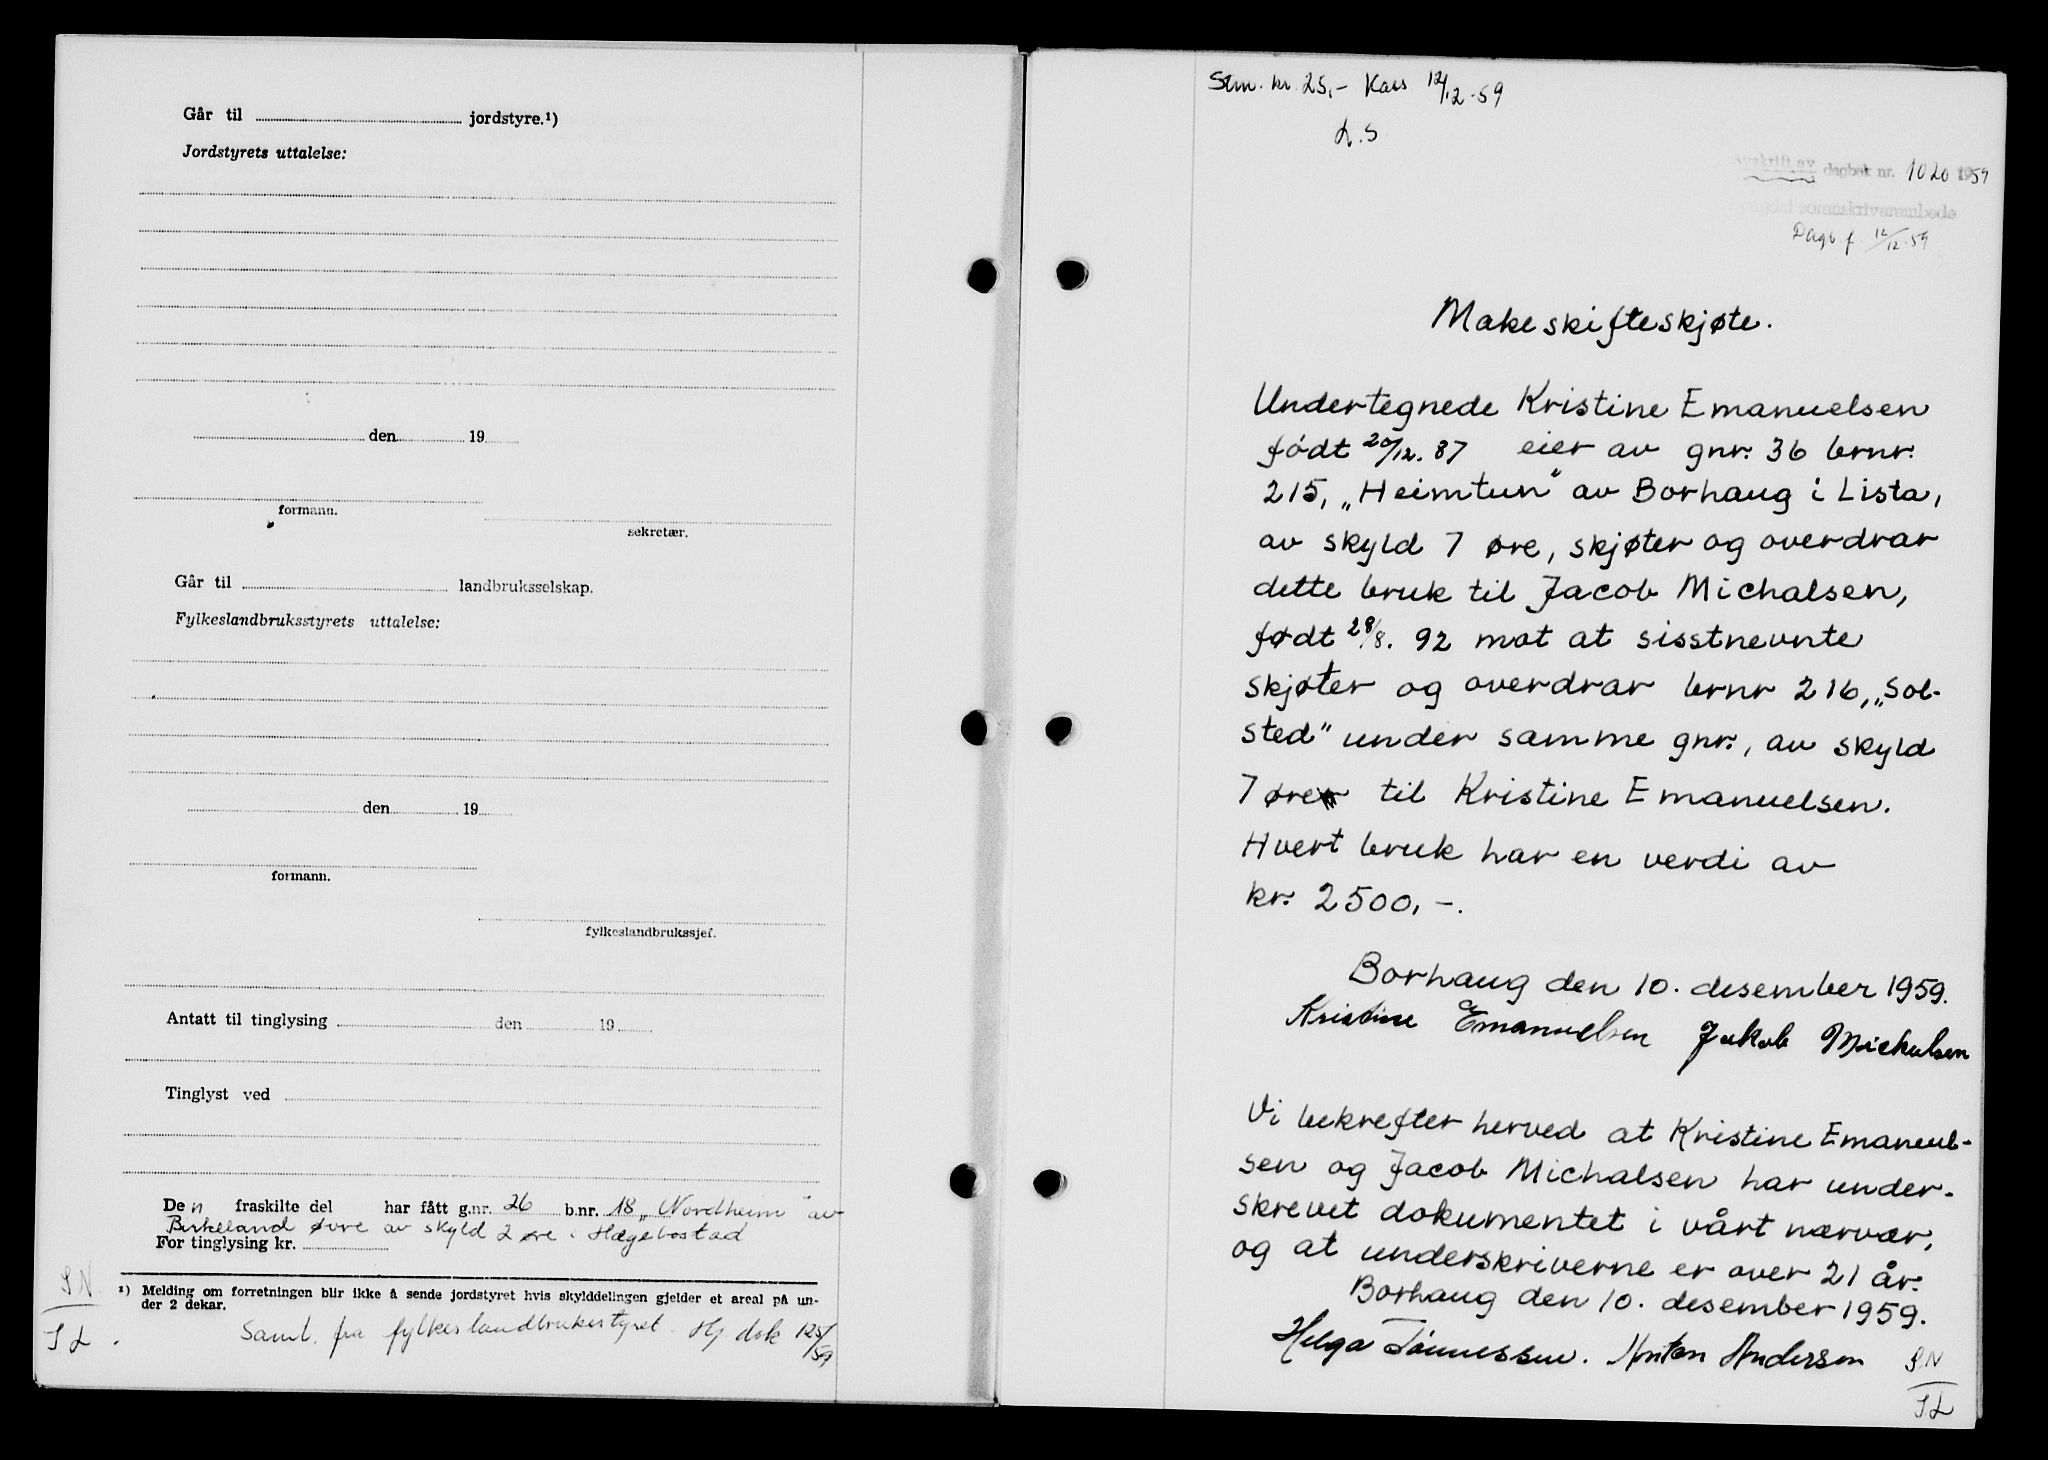 Går til jordstyre.¹)
Jordstyrets uttalelse:
den 19
formann.
sekretær.
Går til landbruksselskap.
Fylkeslandbruksstyrets uttalelse:
den 19
formann.
fylkeslandbrukssjef.
Antatt til tinglysing den 19
Tinglyst ved
Den fraskilte del har fått g.nr. 26 b.nr. 18 „Nordheim" av
Birkeland øvre av skyld 2 øre i Hægebostad
For tinglysing kr.
¹) Melding om forretningen blir ikke å sende jordstyret hvis skylddelingen gjelder et areal på un-
der 2 dekar.
Saml. fra fylkeslandbrukestyret. Hj dok 125/59
SN
SL
Stm. kr. 25,- Kass 12/12-59
L.S
Avskrift av dagbok nr. 1020 1959
sorenskriverembede
Dagb f. 12/12-59
Makeskifteskjøte.
Undertegnede Kristine Emanuelsen
født 20/12. 87 eier av gnr. 36 brnr.
215, „Heimtun" av Borhaug i Lista,
av skyld 7 øre, skjøter og overdrar
dette bruk til Jacob Michalsen,
født 28/8. 92 mot at sisstnevnte
skjøter og overdrar brnr 216, „Sol-
sted" under samme gnr., av skyld
7 øre til Kristine Emanuelsen.
Hvert bruk har en verdi av
kr. 2500,-.
Borhaug den 10. desember 1959.
Kristine Emanuelsen Jakob Mickalsen
Vi bekrefter herved at Kristine Emanuel-
sen og Jacob Michalsen har under-
skrevet dokumentet i vårt nærvær,
og at underskriverne er over 21 år.
Borhaug den 10. desember 1959.
Helga Tönnessen. Anton Andersen
SN
SL